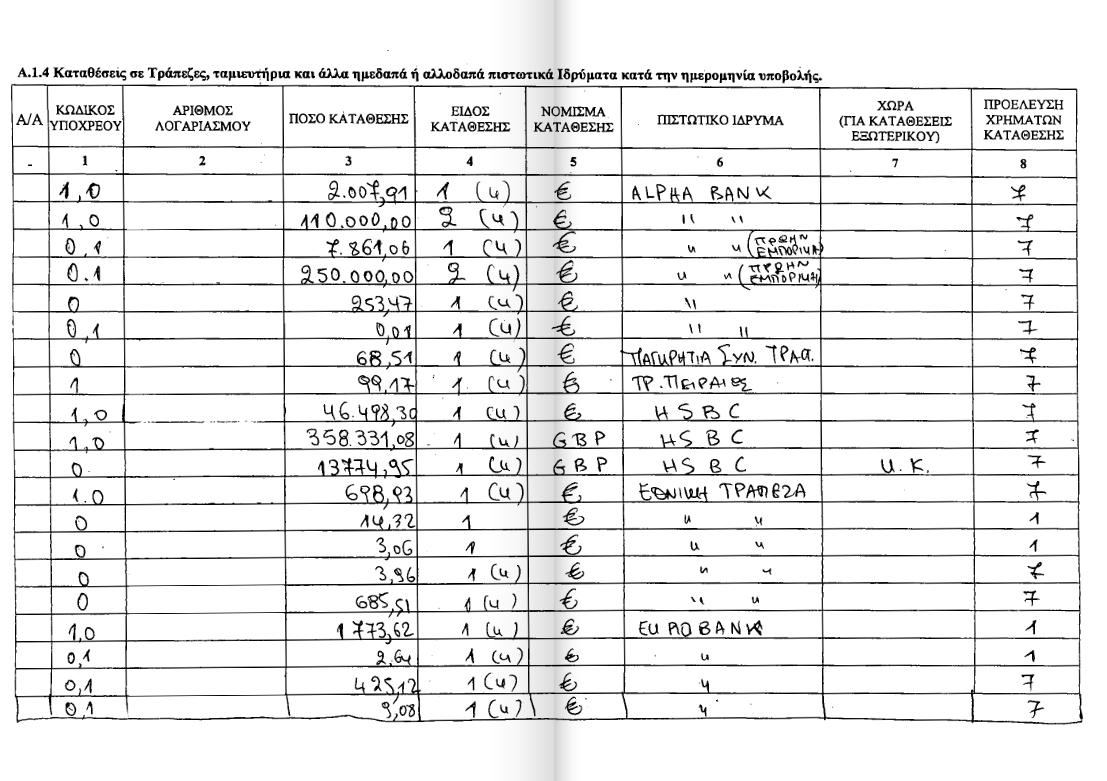 Α.1.4 Καταθέσεις σε Τράπεζες, ταμιευτήρια και άλλα ημεδαπά ή αλλοδαπά πιστωτικά Ιδρύματα κατά την ημερομηνία υποβολής.
Α/Α ΚΩΔΙΚΟΣ ΥΠΟΧΡΕΟΥ ΑΡΙΘΜΟΣ ΛΟΓΑΡΙΑΣΜΟΥ ΠΟΣΟ ΚΑΤΑΘΕΣΗΣ ΕΙΔΟΣ ΚΑΤΑΘΕΣΗΣ ΝΟΜΙΣΜΑ ΚΑΤΑΘΕΣΗΣ ΠΙΣΤΩΤΙΚΟ ΙΔΡΥΜΑ ΧΩΡΑ (ΓΙΑ ΚΑΤΑΘΕΣΕΙΣ ΕΞΩΤΕΡΙΚΟΥ) ΠΡΟΕΛΕΥΣΗ ΧΡΗΜΑΤΩΝ ΚΑΤΑΘΕΣΗΣ
- 1 2 3 4 5 6 7 8
1,0 2.007,91 1 (4) € ALPHA BANK 7
1,0 110.000,00 2 (4) € " " 7
0,1 7.861,06 1 (4) € " " (ΠΡΩΗΝ ΕΜΠΟΡΙΚΗ) 7
0.1 250.000,00 2 (4) € " " (ΠΡΩΗΝ ΕΜΠΟΡΙΚΗ) 7
0 253,47 1 (4) € " 7
0,1 0,01 1 (4) € " " 7
0 68,51 1 (4) € ΠΑΓΚΡΗΤΙΑ ΣΥΝ. ΤΡΑΠ. 7
1 99,17 1 (4) € ΤΡ. ΠΕΙΡΑΙΩΣ 7
1,0 46.498,30 1 (4) € HSBC 7
1,0 358.331,08 1 (4) GBP HSBC 7
0 13774,95 1 (4) GBP HSBC U.K. 7
1.0 698,93 1 (4) € ΕΘΝΙΚΗ ΤΡΑΠΕΖΑ 7
0 14,32 1 € " " 1
0 3,06 1 € " " 1
0 3,96 1 (4) € " " 7
0 685,51 1 (4) € " " 7
1,0 1773,62 1 (4) € EUROBANK 1
0,1 2.64 1 (4) € " 1
0,1 425,12 1 (4) € " 7
0,1 9,08 1 (4) € " 7